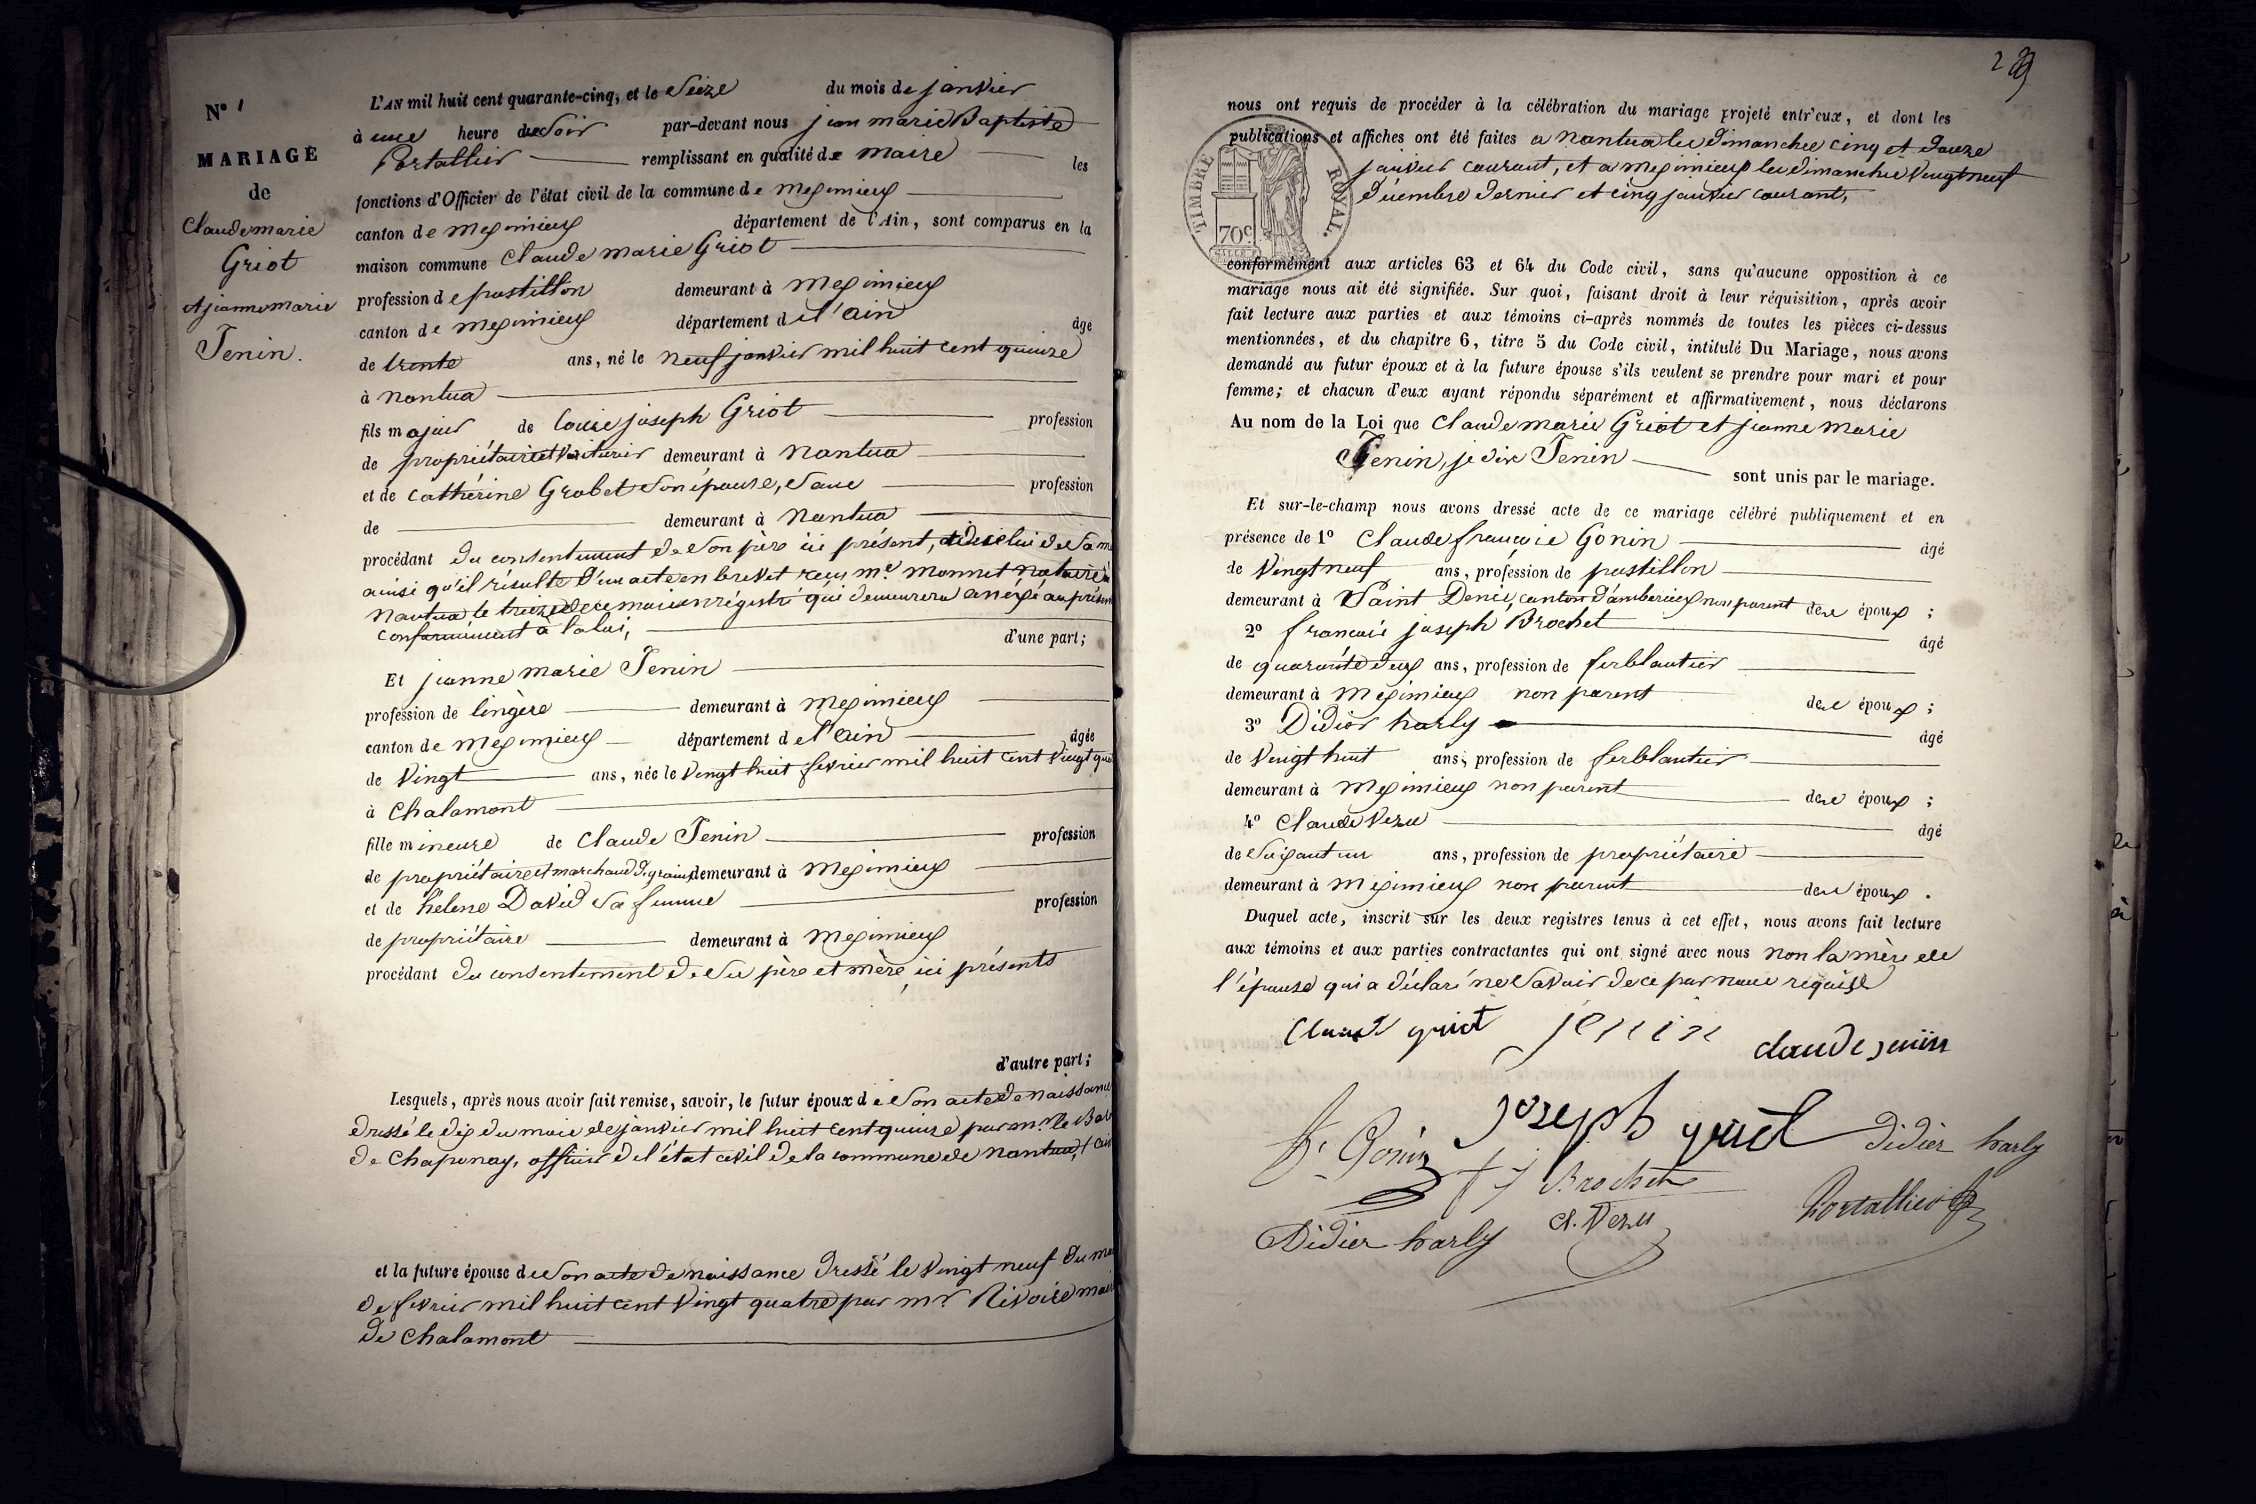 N° 1
MARIAGE
de
Claude marie
Griot
et jeanne marie
Jenin.
L'AN mil huit cent quarante-cinq, et le Seize du mois de janvier
à une heure du Soir par-devant nous jean marie Baptiste
Portallier remplissant en qualité de maire les
fonctions d'Officier de l'état civil de la commune de meximieux
canton de meximieux département de l'Ain, sont comparus en la
maison commune Claude marie Griot
profession de postillon demeurant à meximieux
canton de meximieux département de l'ain âgé
de trente ans, né le neuf janvier mil huit cent quinze
à nantua
fils majeur de Louis joseph Griot profession
de propriétaire et voiturier demeurant à nantua
et de Cathérine Grobet Son épouse, Sans profession
de demeurant à nantua
procédant du consentement de Son père ici présent, et de celui de Sa m
ainsi qu'il résulte d'un acte en brevet reçu me. monnet notaire à
nantua le treize de ce mois enrégistré qui demeurera anéxé au présent
conformément à la loi, d'une part;
Et jeanne marie Jenin
profession de lingère demeurant à meximieux
canton de meximieux département de l'ain âgée
de vingt ans, née le vingt huit fevrier mil huit cent vingt qua
à Chalamont
fille mineure de Claude Jenin profession
de propriétaire et marchand de grains demeurant à meximieux
et de hélène David Sa femme profession
de propriétaire demeurant à meximieux
procédant du consentement de Ses père et mère, ici présents
d'autre part;
Lesquels, après nous avoir fait remise, savoir, le futur époux de Son acte de naissance
dressé le dix du mois de janvier mil huit cent quinze par mr. le Bar
de Chaponay, officier de l'état civil de la commune de nantua, (ain
et la future épouse de Son acte de naissance dressé le vingt neuf du m
de fevrier mil huit cent vingt quatre par mr. Rivoire mai
de Chalamont
nous ont requis de procéder à la célébration du mariage projeté entr'eux, et dont les
publications et affiches ont été faites a nantua les dimanches cinq et douze
janvier courant, et a meximieux les dimanches vingt neuf
décembre dernier et cinq janvier courant,
TIMBRE ROYAL.
70c.
conformément aux articles 63 et 64 du Code civil, sans qu'aucune opposition à ce
mariage nous ait été signifiée. Sur quoi, faisant droit à leur réquisition, après avoir
fait lecture aux parties et aux témoins ci-après nommés de toutes les pièces ci-dessus
mentionnées, et du chapitre 6, titre 5 du Code civil, intitulé Du Mariage, nous avons
demandé au futur époux et à la future épouse s'ils veulent se prendre pour mari et pour
femme; et chacun d'eux ayant répondu séparément et affirmativement, nous déclarons
Au nom de la Loi que Claude marie Griot et jeanne marie
Genin, je dis Jenin sont unis par le mariage.
Et sur-le-champ nous avons dressé acte de ce mariage célébré publiquement et en
présence de 1° Claude françois Gonin âgé
de vingt neuf ans, profession de postillon
demeurant à Saint Denis, canton d'amberieux non parent des époux ;
2° françois joseph Brochet âgé
de quarante deux ans, profession de ferblantier
demeurant à meximieux non parent des époux ;
3° Didier harly âgé
de vingt huit ans, profession de ferblantier
demeurant à meximieux non parent des époux ;
4° Claude Vezu âgé
de Soixante un ans, profession de propriétaire
demeurant à meximieux non parent des époux .
Duquel acte, inscrit sur les deux registres tenus à cet effet, nous avons fait lecture
aux témoins et aux parties contractantes qui ont signé avec nous non la mère de
l'épouse qui a déclaré ne Savoir de ce par nous requise
Claude griot jenin claude jenin
joseph griot
fs. Gonin f j Brochet Didier harly
Didier harly Cl. Vezu Portallier